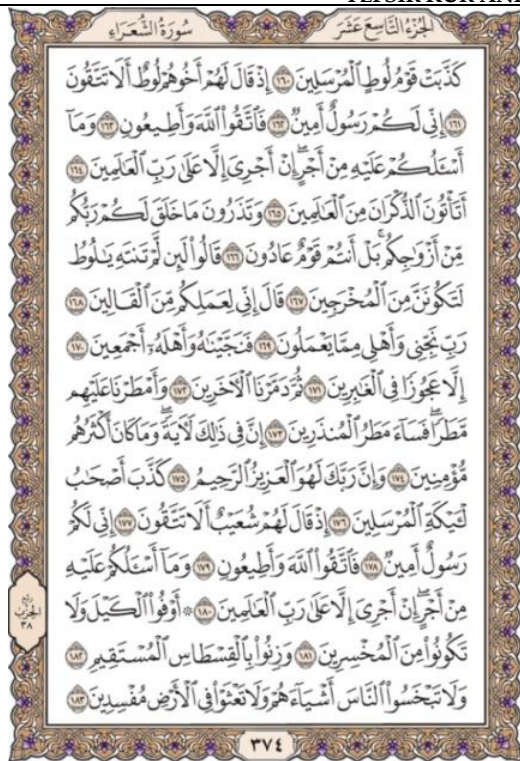 TEFSIR KUR'ANI
الجُزْءُ التَّاسِعَ عَشَرَ
سُورَةُ الشُّعَرَاءِ
كَذَّبَتْ قَوْمُ لُوطٍ ٱلْمُرْسَلِينَ ١٦٠ إِذْ قَالَ لَهُمْ أَخُوهُمْ لُوطٌ أَلَا تَتَّقُونَ
١٦١ إِنِّي لَكُمْ رَسُولٌ أَمِينٌ ١٦٢ فَٱتَّقُوا۟ ٱللَّهَ وَأَطِيعُونِ ١٦٣ وَمَآ
أَسْـَٔلُكُمْ عَلَيْهِ مِنْ أَجْرٍ ۖ إِنْ أَجْرِىَ إِلَّا عَلَىٰ رَبِّ ٱلْعَـٰلَمِينَ ١٦٤
أَتَأْتُونَ ٱلذُّكْرَانَ مِنَ ٱلْعَـٰلَمِينَ ١٦٥ وَتَذَرُونَ مَا خَلَقَ لَكُمْ رَبُّكُم
مِّنْ أَزْوَٰجِكُم ۚ بَلْ أَنتُمْ قَوْمٌ عَادُونَ ١٦٦ قَالُوا۟ لَئِن لَّمْ تَنتَهِ يَـٰلُوطُ
لَتَكُونَنَّ مِنَ ٱلْمُخْرَجِينَ ١٦٧ قَالَ إِنِّي لِعَمَلِكُم مِّنَ ٱلْقَالِينَ ١٦٨
رَبِّ نَجِّنِى وَأَهْلِى مِمَّا يَعْمَلُونَ ١٦٩ فَنَجَّيْنَـٰهُ وَأَهْلَهُۥٓ أَجْمَعِينَ ١٧٠
إِلَّا عَجُوزًا فِى ٱلْغَـٰبِرِينَ ١٧١ ثُمَّ دَمَّرْنَا ٱلْـَٔاخَرِينَ ١٧٢ وَأَمْطَرْنَا عَلَيْهِم
مَّطَرًا ۖ فَسَآءَ مَطَرُ ٱلْمُنذَرِينَ ١٧٣ إِنَّ فِى ذَٰلِكَ لَـَٔايَةً ۖ وَمَا كَانَ أَكْثَرُهُم
مُّؤْمِنِينَ ١٧٤ وَإِنَّ رَبَّكَ لَهُوَ ٱلْعَزِيزُ ٱلرَّحِيمُ ١٧٥ كَذَّبَ أَصْحَـٰبُ
لْـَٔيْكَةِ ٱلْمُرْسَلِينَ ١٧٦ إِذْ قَالَ لَهُمْ شُعَيْبٌ أَلَا تَتَّقُونَ ١٧٧ إِنِّي لَكُمْ
رَسُولٌ أَمِينٌ ١٧٨ فَٱتَّقُوا۟ ٱللَّهَ وَأَطِيعُونِ ١٧٩ وَمَآ أَسْـَٔلُكُمْ عَلَيْهِ
مِنْ أَجْرٍ ۖ إِنْ أَجْرِىَ إِلَّا عَلَىٰ رَبِّ ٱلْعَـٰلَمِينَ ١٨٠ ۞ أَوْفُوا۟ ٱلْكَيْلَ وَلَا
تَكُونُوا۟ مِنَ ٱلْمُخْسِرِينَ ١٨١ وَزِنُوا۟ بِٱلْقِسْطَاسِ ٱلْمُسْتَقِيمِ ١٨٢
وَلَا تَبْخَسُوا۟ ٱلنَّاسَ أَشْيَآءَهُمْ وَلَا تَعْثَوْا۟ فِى ٱلْأَرْضِ مُفْسِدِينَ ١٨٣
ربع
الحزب
٣٨
٣٧٤